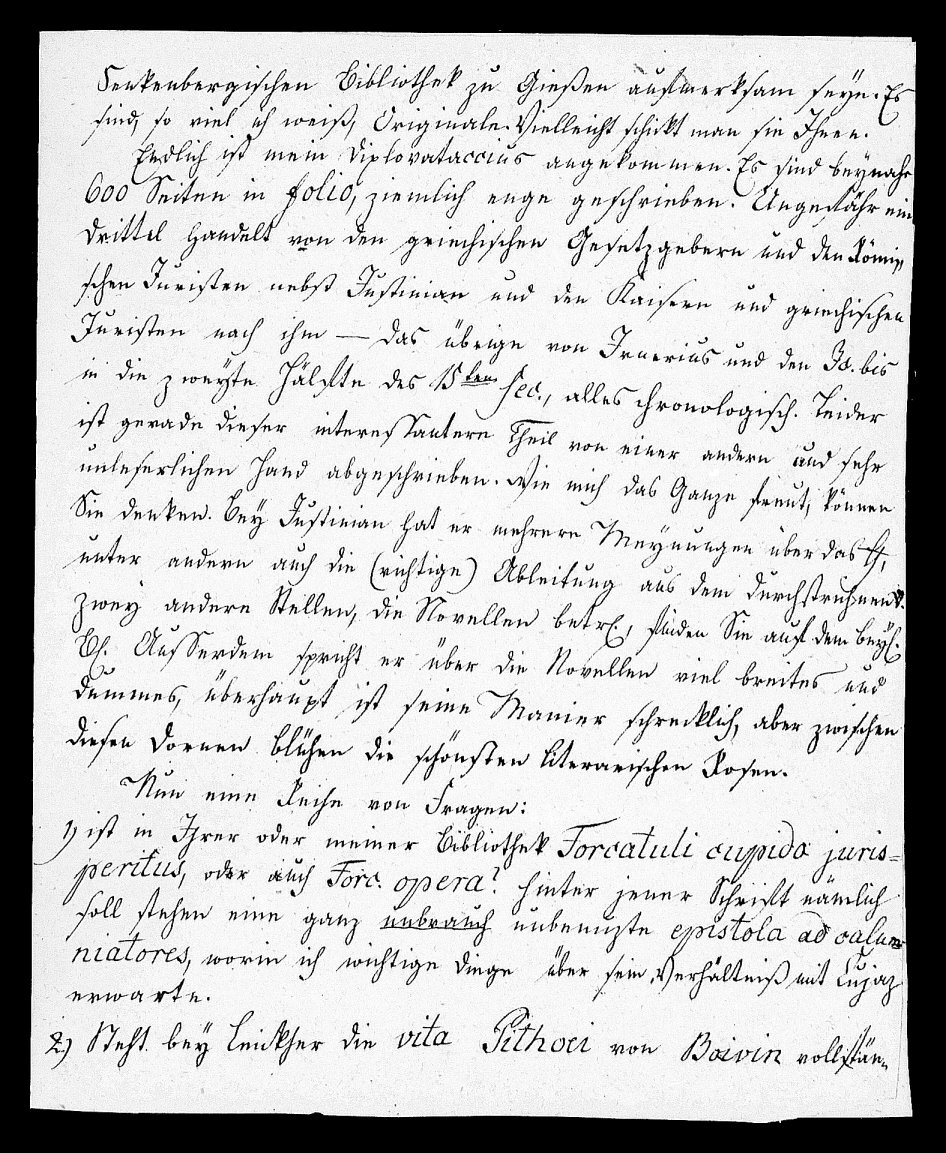 Senkenbergischen Bibliothek zu Gießen aufmerksam seyn. Es
sind, so viel ich weiß, Originale. Vielleicht schickt man sie Ihnen.
Endlich ist mein Diplovataccius angekommen. Es sind beynahe
600 Seiten in folio, ziemlich enge geschrieben. Ungefähr ein
Drittel handelt von den griechischen Gesetzgebern und den Römi-
schen Juristen nebst Justinian und den Kaisern und griechischen
Juristen nach ihm — das übrige von Irnerius und den Js. bis
in die zweyte Hälfte des 15ten Sec., alles chronologisch. Leider
ist gerade dieser interessantere Theil von einer andern und sehr
unleserlichen Hand abgeschrieben. Wie mich das Ganze freut, können
Sie denken. Bey Justinian hat er mehrere Meynungen über das
unter andern auch die (richtige) Ableitung aus dem durchstrichenen
Zwey andere Stellen, die Novellen betr., finden Sie auf dem beyl.
Bl. Ausserdem spricht er über die Novellen viel breites und
dummes, überhaupt ist seine Manier schrecklich, aber zwischen
diesen Dornen blühen die schönsten literarischen Rosen.
Nun eine Reihe von Fragen:
1) ist in Ihrer oder meiner Bibliothek Forcatuli cupido juris=
peritus, oder auch Forc. opera? Hinter jener Schrift nämlich
soll stehen eine ganz unbrauch unbenuzte epistola ad calum-
niatores, worin ich wichtige Dinge über sein Verhältniß mit Cujaz
erwarte.
2) Steht bey Leickher die vita Pithoei von Boivin vollstän-